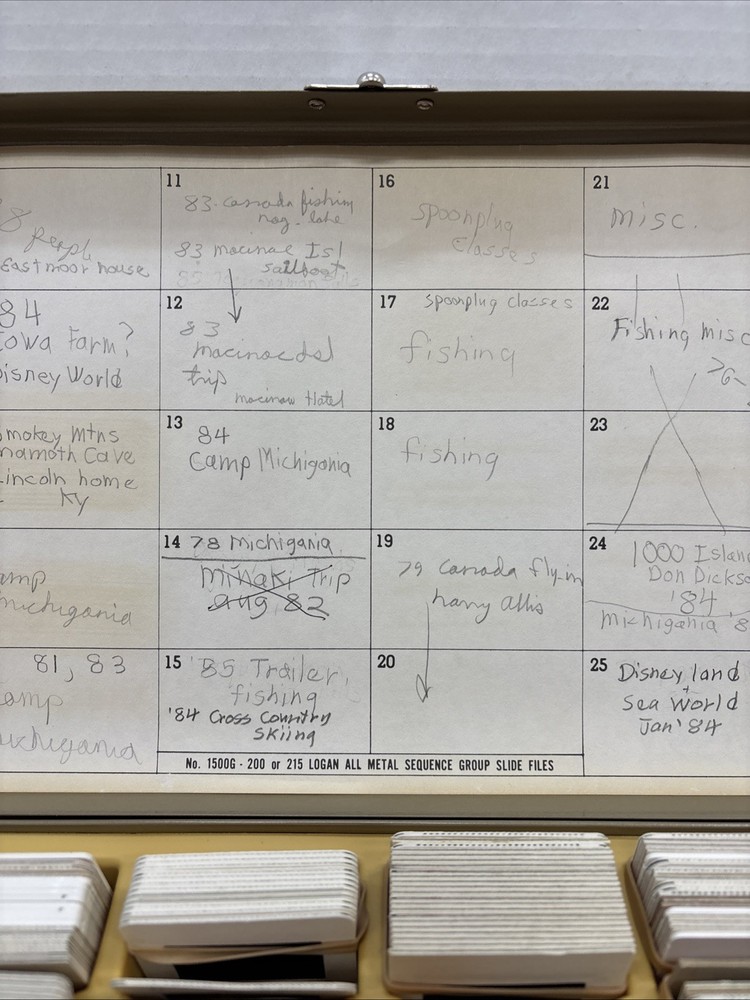 8
East moor house
84
Iowa Farm?
Disney World
Smokey Mtns
Mamoth Cave
Lincoln home
Ky
amp
Michigania
81, 83
amp
Michigania
11
83. Canada fishin
nag. lake
83 macinac Isl
sailboat
12
83
macinac Isl
trip
macinaw Hotel
13
84
Camp Michigania
14 78 Michigania
Minaki Trip
aug 82
15 '85 Trailer,
fishing
'84 Cross Country
Skiing
16
Spoonplug
Classes
17 Spoonplug Classes
fishing
18
fishing
19
79 Canada fly-in
harry allis
20
21
misc.
22
Fishing misc
76-
23
24
1000 Islan
Don Dickso
'84
Michigania '8
25 Disney land
+
Sea World
Jan '84
No. 1500G - 200 or 215 LOGAN ALL METAL SEQUENCE GROUP SLIDE FILES